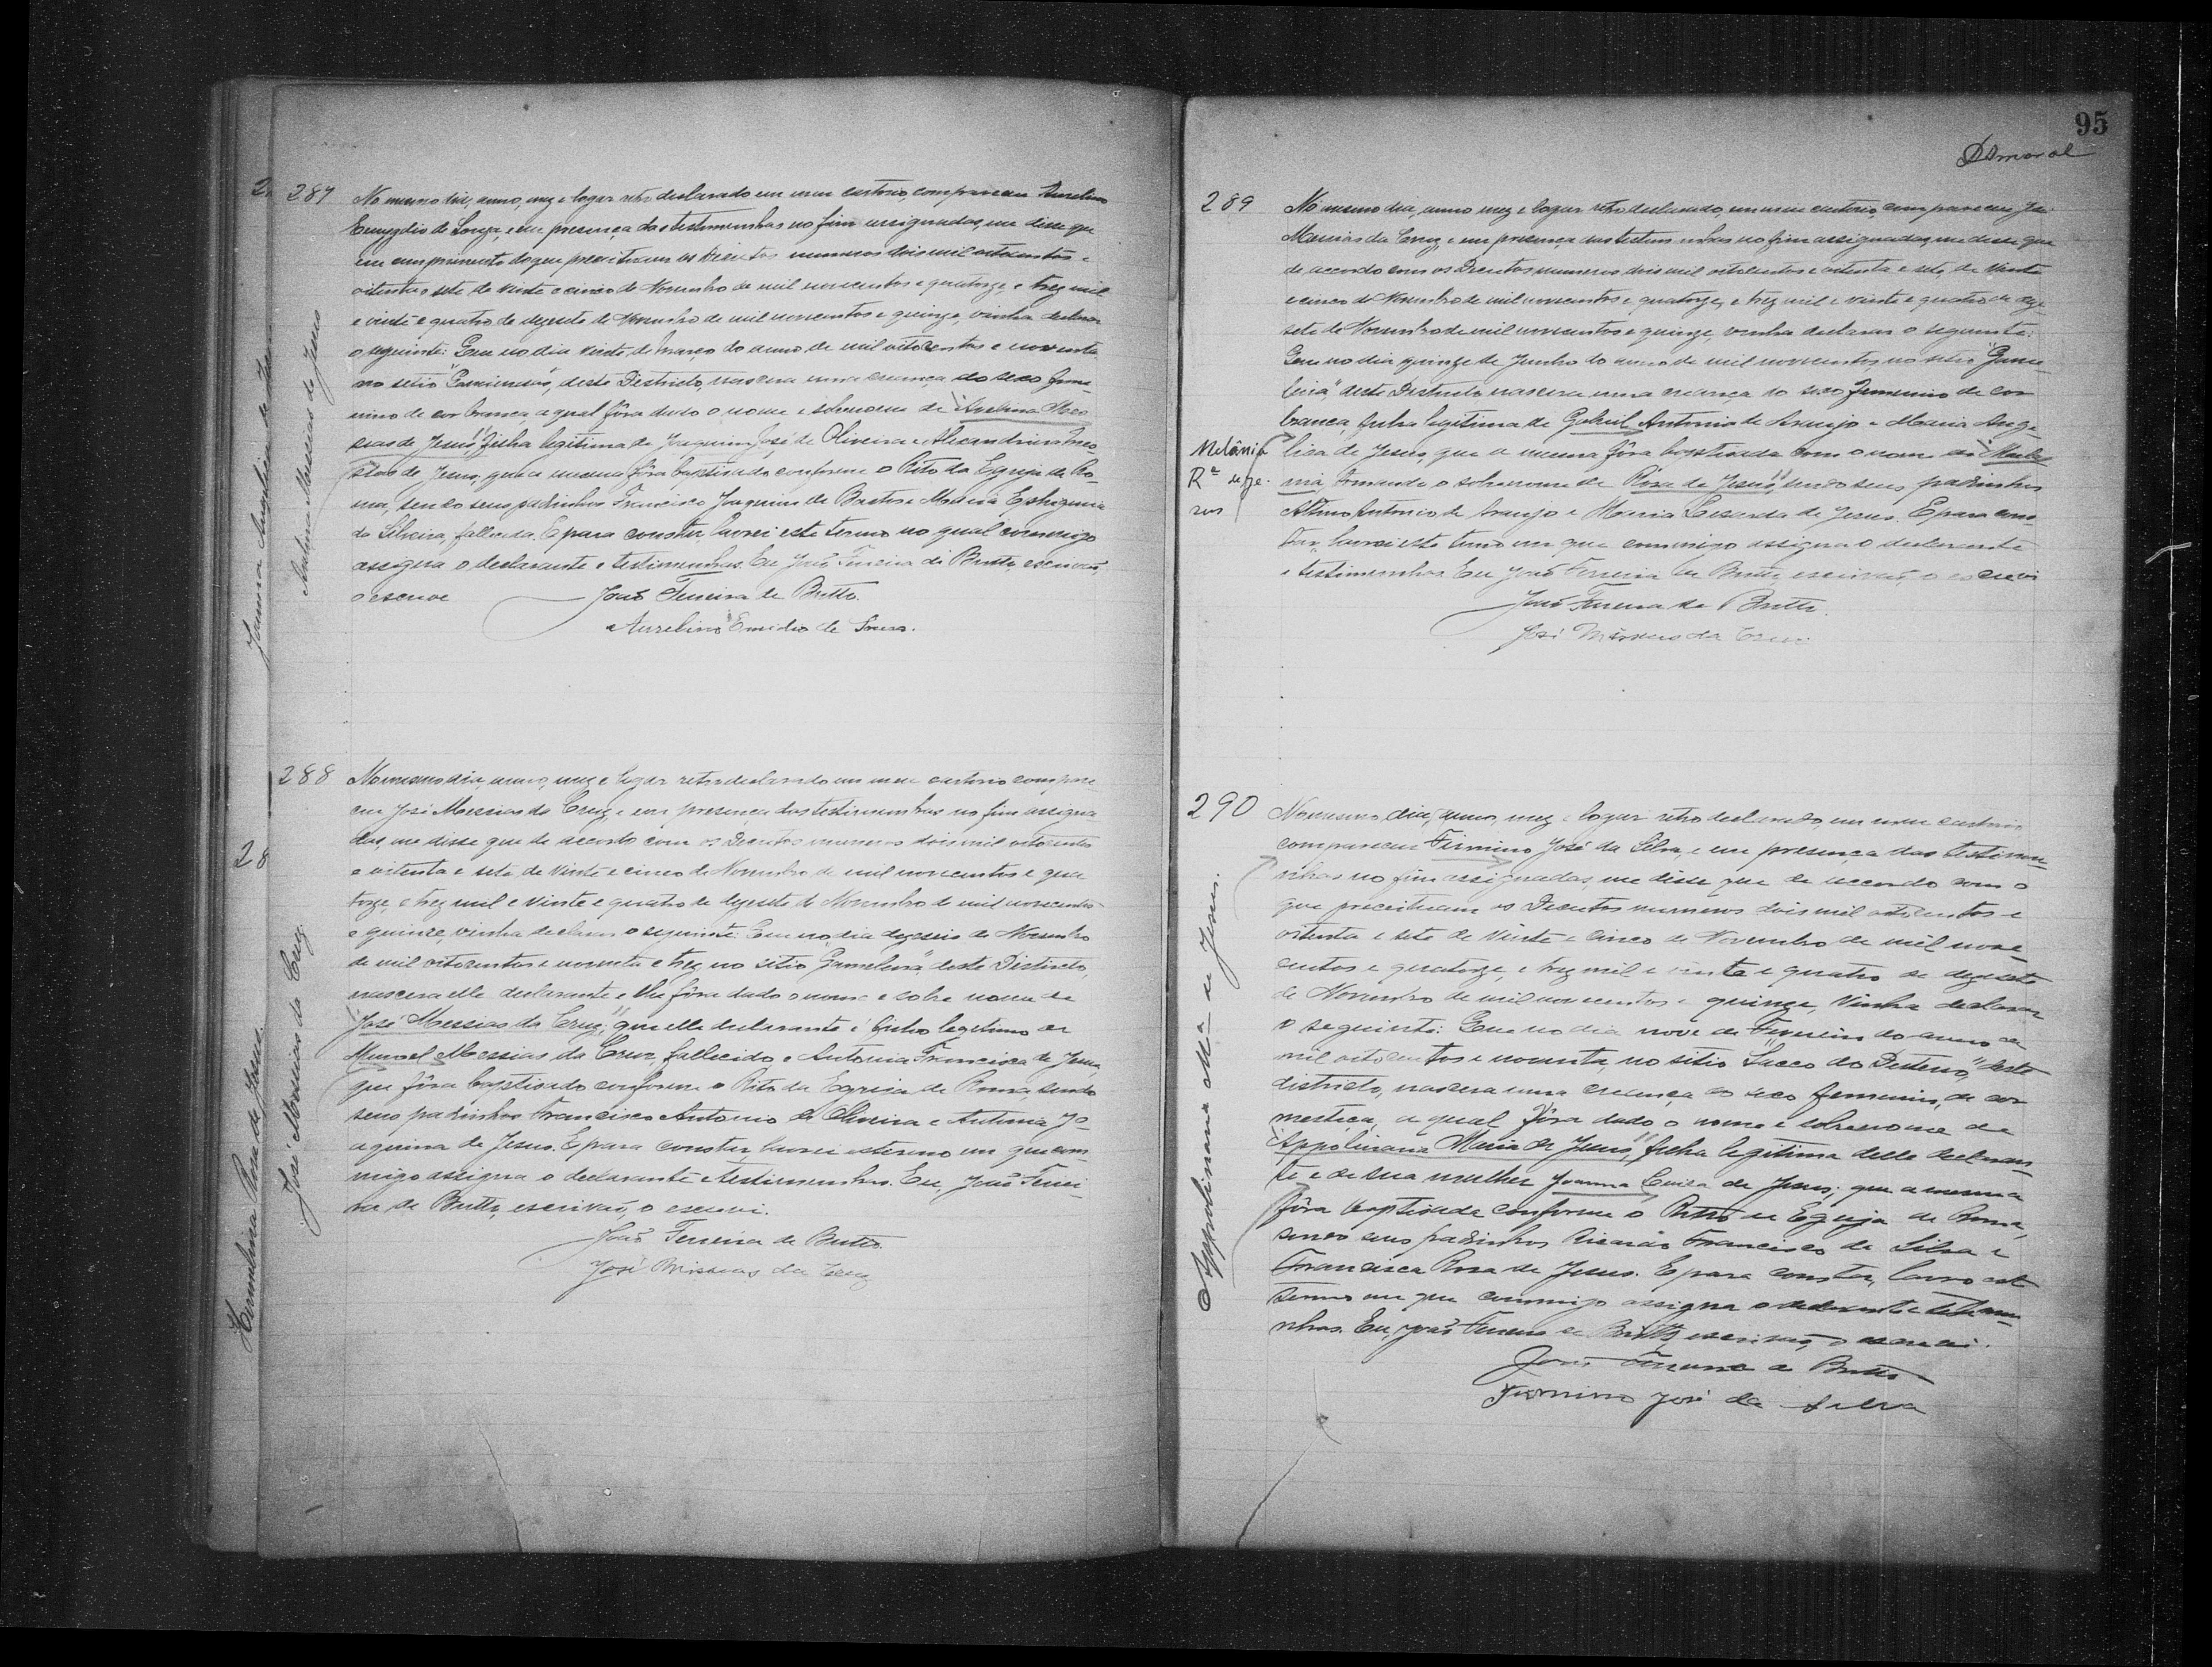 287
No mesmo dia, anno, mez e logar retro declarado em meu cartorio, compareceu Aurelino
Emygdio de Souza, e em presença das testimunhas no fim assignadas, me disse que
em cumprimento do que preceituam os Decretos numeros dois mil oitocentos e
oitenta e sete de vinte e cinco de Novembro de mil novecentos e quatorze, e trez mil
e vinte e quatro de dezesete de Novembro de mil novecentos e quinze, vinha declarar
o seguinte: Que no dia vinte de março do anno de mil oitocentos e noventa
no sitio deste Districto, nascera uma creança do sexo femi-
nino de cor branca a qual fôra dado o nome e sobrenome de "Avelina Mes-
sias de Jesus", filha legitima de Joaquim José de Oliveira e Alexandrina
de Jesus, que a mesma fôra baptisada conforme o Rito da Egreja de Ro-
ma, sendo seus padrinhos Francisco Joaquim de Bastos e Maria
da Silveira, fallecida. E para constar, lavrei este termo no qual commigo
assigna o declarante e testimunhas. Eu João Ferreira de Britto, escrivão,
o escrevi
João Ferreira de Britto.
Aurelino Emidio de Souza.
Avelina Messias de Jesus
Joanna de Jesus
288
No mesmo dia, anno, mez e logar retro declarado em meu cartorio compare-
ceu José Messias da Cruz, e em presença das testimunhas no fim assigna-
das, me disse que de accordo com os Decretos numeros dois mil oitocentos
e oitenta e sete de vinte e cinco de Novembro de mil novecentos e qua-
torze, e trez mil e vinte e quatro de dezesete de Novembro de mil novecentos
e quinze, vinha declarar o seguinte: Que no dia dezeseis de Novembro
de mil oitocentos e noventa e trez no sitio "Gamelleira" deste Districto,
nascera elle declarante e lhe fôra dado o nome e sobre nome de
"José Messias da Cruz," que elle declarante é filho legitimo de
Manoel Messias da Cruz, fallecido e Antonia Francisca de Jesus,
que fôra baptisado conforme o Rito da Egreja de Roma sendo
seus padrinhos Francisco Antonio de Oliveira e Antonia Jo-
aquina de Jesus. E para constar, lavrei este termo em que com-
migo assigna o declarante e testimunhas. Eu, João Ferrei-
ra de Britto, escrivão, o escrevi.
João Ferreira de Britto.
José Missias da Cruz
José Messias da Cruz.
28
Hermelina Rosa de Jesus
95
DAmaral
289
No mesmo dia, anno mez e logar retro declarado, em meu cartorio compareceu José
Messias da Cruz, e em presença das testimunhas no fim assignadas, me disse que
de accordo com os Decretos numeros dois mil oitocentos e oitenta e sete, de vinte
e cinco de Novembro de mil novecentos e quatorze, e trez mil e vinte e quatro de deze-
sete de Novembro de mil novecentos e quinze, vinha declarar o seguinte:
Que no dia quinze de Junho do anno de mil novecentos, no sitio "Game-
leira" deste Districto nascera uma creança do sexo femenino de cor
branca, filha legitima de Gabriel Antonio de Araujo e Maria Ange-
lica de Jesus, que a mesma fôra baptisada com o nome de
nia, tomando o sobrenome de Rosa de Jesus", sendo seus padrinhos
Antonio de Araujo e Maria de Jesus. E para cons-
tar, lavrei este termo em que commigo assigna o declarante
e testimunhas. Eu João Ferreira de Britto, escrivão, o escrevi
João Ferreira de Britto.
José Missias da Cruz
Melânia
Rª de Je-
sus
290
No mesmo dia, anno, mez e logar retro declarado em meu cartorio
compareceu Firmino José da Silva, e em presença das testimu-
nhas no fim assignadas, me disse que de accordo com o
que preceituam os Decretos numeros dois mil oitocentos e
oitenta e sete de vinte e cinco de Novembro de mil nove-
centos e quatorze, e trez mil e vinte e quatro de dezesete
de Novembro de mil novecentos e quinze, vinha declarar
o seguinte: Que no dia nove de Fevereiro do anno de
mil oitocentos e noventa, no sitio "Sacco do Desterro", deste
districto, nascera uma creança do sexo femenino, de cor
mestiça, a qual fôra dado o nome e sobrenome de
"Appolinaria Maria de Jesus", filha legitima delle declaran-
te e de sua mulher Joanna Luiza de Jesus; que a mesma
fôra baptisada conforme o Ritto da Egreja de Roma,
sendo seus padrinhos Ricardo Francisco da Silva e
Francisca Rosa de Jesus. E para constar, lavro este
termo em que commigo assigna o declarante e testimu-
nhas. Eu, João Ferreira de Britto, escrivão, o escrevi.
João Ferreira de Britto
Firmino José da Silva
Appolinaria Mª de Jesus.